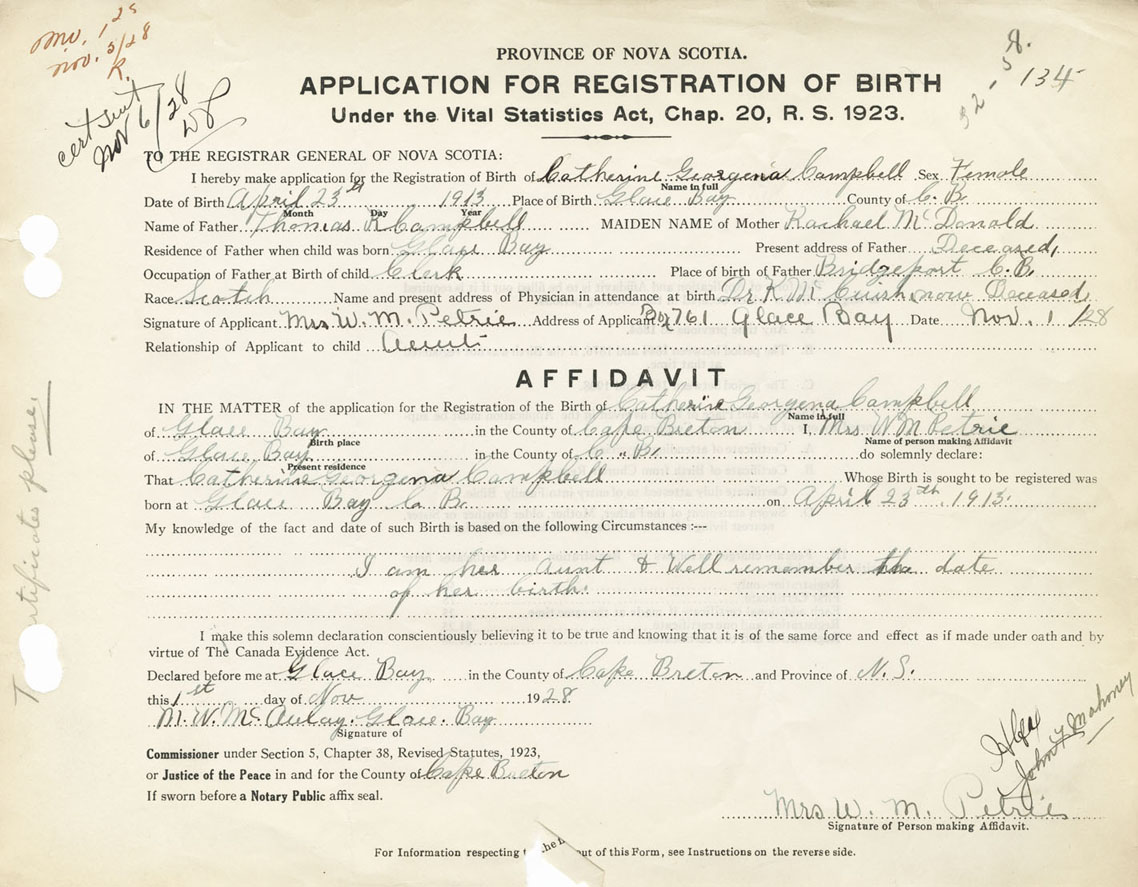 nov. 5/28
K.
cert sent
Nov 6/28
8.
5
134
32
PROVINCE OF NOVA SCOTIA.
APPLICATION FOR REGISTRATION OF BIRTH
Under the Vital Statistics Act, Chap. 20, R. S. 1923.
TO THE REGISTRAR GENERAL OF NOVA SCOTIA:
I hereby make application for the Registration of Birth of Catherine Georgena Campbell Sex Female
Name in full
Date of Birth April 23rd 1913 Place of Birth Glace Bay County of C. B.
Month Day Year
Name of Father Thomas R Campbell MAIDEN NAME of Mother Rachael McDonald
Residence of Father when child was born Glace Bay Present address of Father Deceased,
Occupation of Father at Birth of child Clerk Place of birth of Father Bridgeport C.B.
Race Scotch Name and present address of Physician in attendance at birth Dr. K. Deceased
Signature of Applicant Mrs W. M. Petrie Address of Applicant Box 761 Glace Bay Date Nov. 1/28
Relationship of Applicant to child Aunt
AFFIDAVIT
IN THE MATTER of the application for the Registration of the Birth of Catherine Georgena Campbell
Name in full
of Glace Bay in the County of Cape Breton I, Mrs W M Petrie
Birth place Name of person making Affidavit
of Glace Bay in the County of C. B. do solemnly declare:
Present residence
That Catherine Georgena Campbell Whose Birth is sought to be registered was
born at Glace Bay C. B. on April 23 1913.
My knowledge of the fact and date of such Birth is based on the following Circumstances :---
I am her Aunt & Well remember the date
of her birth.
I make this solemn declaration conscientiously believing it to be true and knowing that it is of the same force and effect as if made under oath and by
virtue of The Canada Evidence Act.
Declared before me at Glace Bay in the County of Cape Breton and Province of N. S.
this 1st day of Nov 1928
M. W. McAulay. Glace Bay
Signature of
Commissioner under Section 5, Chapter 38, Revised Statutes, 1923,
or Justice of the Peace in and for the County of Cape Breton
If sworn before a Notary Public affix seal.
Mrs W. M. Petrie
Signature of Person making Affidavit.
For Information respecting out of this Form, see Instructions on the reverse side.
certificates please.
Hfax
John F Mahoney